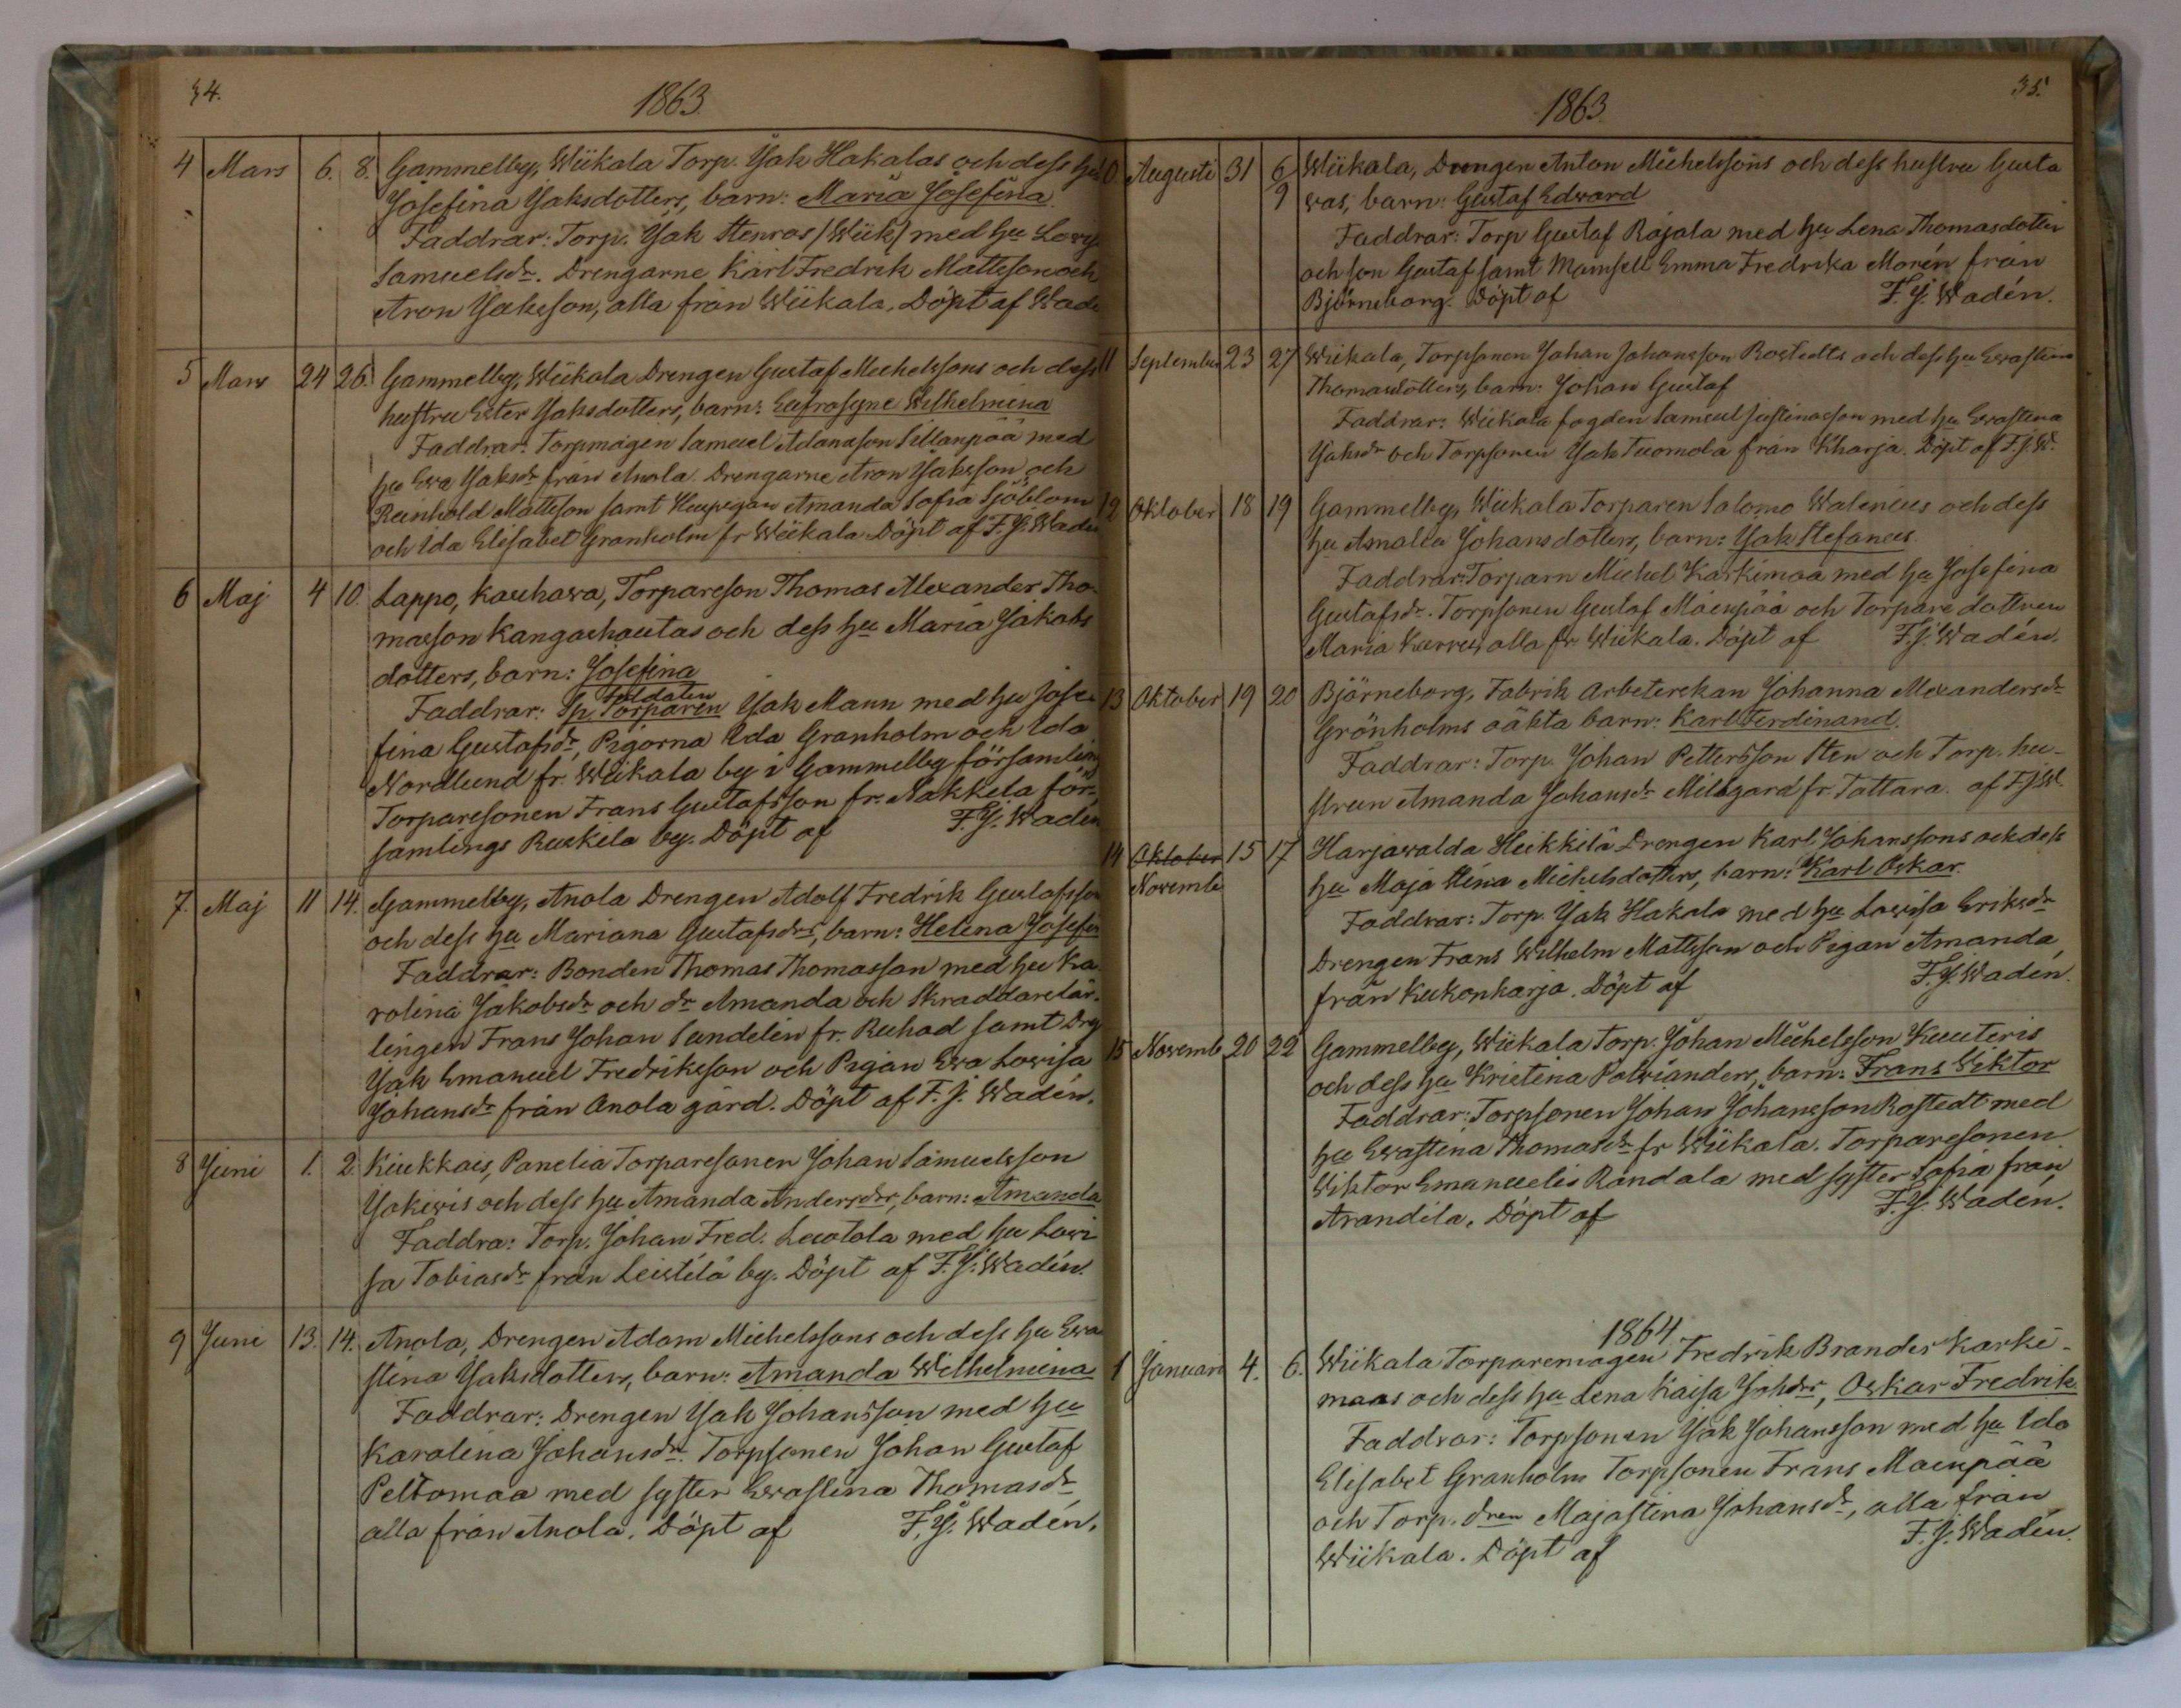 34.
1863.
4 Mars 6. 8. Gammelby, Wiikala Torp. Yak Hakalas och dess hu
Josefina Yaksdotters, barn: Maria Josefina
Faddrar: Torp. Yak Stenros /Wiik/ med hu Lowis
Samuelsdr. Drengarne Karl Fredrik Mattsson och
Aron Yaksson, alla från Wiikala. Döpt af Wade
5 Mars 24 26. Gammelby, Wiikala Drengen Gustaf Michelssons och dess
hustru Ester Yaksdotters, barn: Eufrosyne Wilhelmina
Faddrar: Torpmågen Samuel Adamsson Sillanpää med
hu Ewa Yaksdr från Anola. Drengarne Aron Yaksson och
Reinhold Mattsson samt Huspigan Amanda Sofia Sjöblom
och Ida Elisabet Granholm fr Wiikala Döpt af F. J. Waden
6 Maj 4 10. Lappo, Kauhawa, Torpareson Thomas Alexander Tho-
masson Kangashautas och dess hu Maria Jakobs
dotters, barn: Josefina
soldaten
Faddrar: Sp. Torparen Yak Mann med hu Jose-
fina Gustafsdr, Pigorna Ida Granholm och Ida
Nordlund fr. Wiikala by i Gammelby församling
Torparesonen Frans Gustafsson fr. Nakkila för-
samlings Ruskila by. Döpt af F. J. Wadén
7. Maj 11 14. Gammelby, Anola Drengen Adolf Fredrik Gustafsson
och dess hu Mariana Gustafsdrs, barn: Helena Josefin
Faddrar: Bonden Thomas Thomasson med hu Ka-
rolina Jakobsdr och dr Amanda och Skraddarelär-
lingen Frans Johan Sandelin fr. Ruhad samt Drg
Yak Emanuel Fredriksson och Pigan Ewa Lowisa
Johansdr från Anola gård. Döpt af F. J. Wadén.
8 Juni 1. 2. Kiukkais, Panelia Torparesonen Johan Samuelsson
Yakiwis och dess hu Amanda Andersdrs, barn: Amanda
Faddra: Torp. Johan Fred. Leutola med hu Lowi
sa Tobiasdr från Leistilä by. Döpt af F. J. Wadén.
9 Juni 13. 14. Anola, Drengen Adam Michelssons och dess hu Ewa
stina Yaksdotters, barn: Amanda Wilhelmina
Faddrar: Drengen Yak Johansson med hu
Karolina Johansdr. Torpsonen Johan Gustaf
Peltomaa med syster Ewastina Thomasdr
alla från Anola. Döpt af F. J. Wadén.
35.
1863.
10 Augusti 31 6/9 Wiikala, Drengen Anton Michelssons och dess hustru Gusta
was, barn: Gustaf Edward
Faddrar: Torp Gustaf Rajala med hu Lena Thomasdotter
och son Gustaf samt Mamsell Emma Fredrika Morén från
Björneborg. Döpt af F. J. Wadén.
11 September 23 27 Wiikala, Torpsonen Johan Johansson Rostedts och dess hu Ewastina
Thomasdotters, barn: Johan Gustaf
Faddrar: Wiikala fogden Samuel Justinasson med hu Ewastina
Yaksdr och Torpsonen Yak Tuomola från Kharja. Döpt af F. J. W.
12 Oktober 18 19 Gammelby, Wiikala Torparen Salomo Walenius och dess
hu Amalia Johansdotters, barn: Yak Stefanus
Faddrar: Torparn Michel Karkimaa med hu Josefina
Gustafsdr. Torpsonen Gustaf Mäenpää och Torpare dottren
Maria Kurru, alla fr. Wiikala. Döpt af F. J. Wadén.
13 Oktober 19 20 Björneborg, Fabrik Arbeterskan Johanna Alexandersdr
Grönholms oäkta barn: Karl Ferdinand.
Faddrar: Torp. Johan Pettersson Sten och Torp. hu-
strun Amanda Johansdr Milsgard fr. Tattara. af F. J. W.
14 Oktober 15 17 Harjawalda Heikkilä Drengen Karl Johanssons och dess
Novemb hu Maja Stina Michelsdotters, barn: Karl Oskar.
Faddrar: Torp. Yak Hakala med hu Lowisa Eriksdr
Drengen Frans Wilhelm Mattsson och Pigan Amanda
från Kukonharja. Döpt af F. J. Wadén.
15 Novemb 20 22 Gammelby, Wiikala Torp. Johan Michelsson Kuuteris
och dess hu Kristina Polvianders, barn: Frans Wiktor
Faddrar: Torpsonen Johan Johansson Rostedt med
hu Ewastina Thomasdr fr Wiikala. Torparesonen
Wiktor Emanuelis Randala med syster Sofia från
Arandila. Döpt af F. J. Wadén.
1864.
1 Januari 4. 6. Wiikala Torparemagen Fredrik Brander Karki-
maas och dess hu Lena Kaisa Johdrs, Oskar Fredrik
Faddrar: Torpsonen Yak Johansson med hu Ida
Elisabet Granholm Torpsonen Frans Maenpää
och Torp. dren Majastina Johansdr, alla från
Wiikala. Döpt af F. J. Wadén.